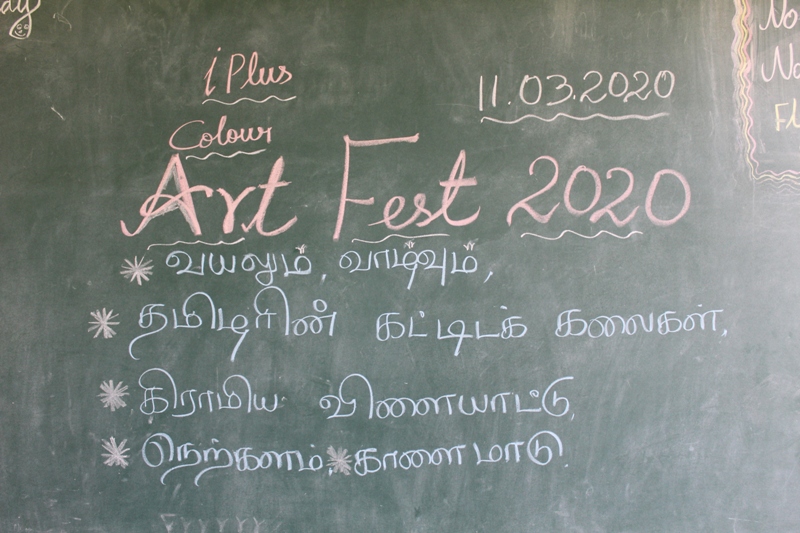 ay
i Plus
11.03.2020
Colour
Art Fest 2020
* வயலும், வாழ்வும்,
* தமிழரின் கட்டிடக் கலைகள்,
* கிராமிய விளையாட்டு,
* நெற்களம், * காளை மாடு.
No
Na
Fl